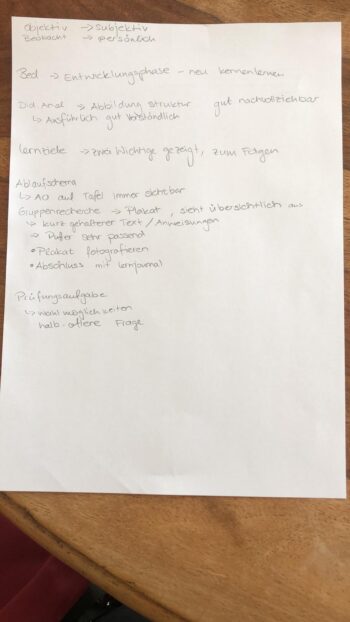 Objektiv → Subjektiv
Beobacht → persönlich
Bed → Entwicklungsphase – neu kennenlernen
Did. Anal → Abbildung Struktur gut nachvollziehbar
↳ Ausführlich gut verständlich
Lernziele → zwei Wichtige gezeigt, zum Folgen
Ablaufschema
↳ AO auf Tafel immer sichtbar
Gruppenrecherche → Plakat, sieht übersichtlich aus
↳ kurz gehaltener Text / Anweisungen
→ Puffer sehr passend
• Plakat fotografieren
• Abschluss mit Lernjournal
Prüfungsaufgabe
↳ wahlmöglichkeiten
halb offene Frage